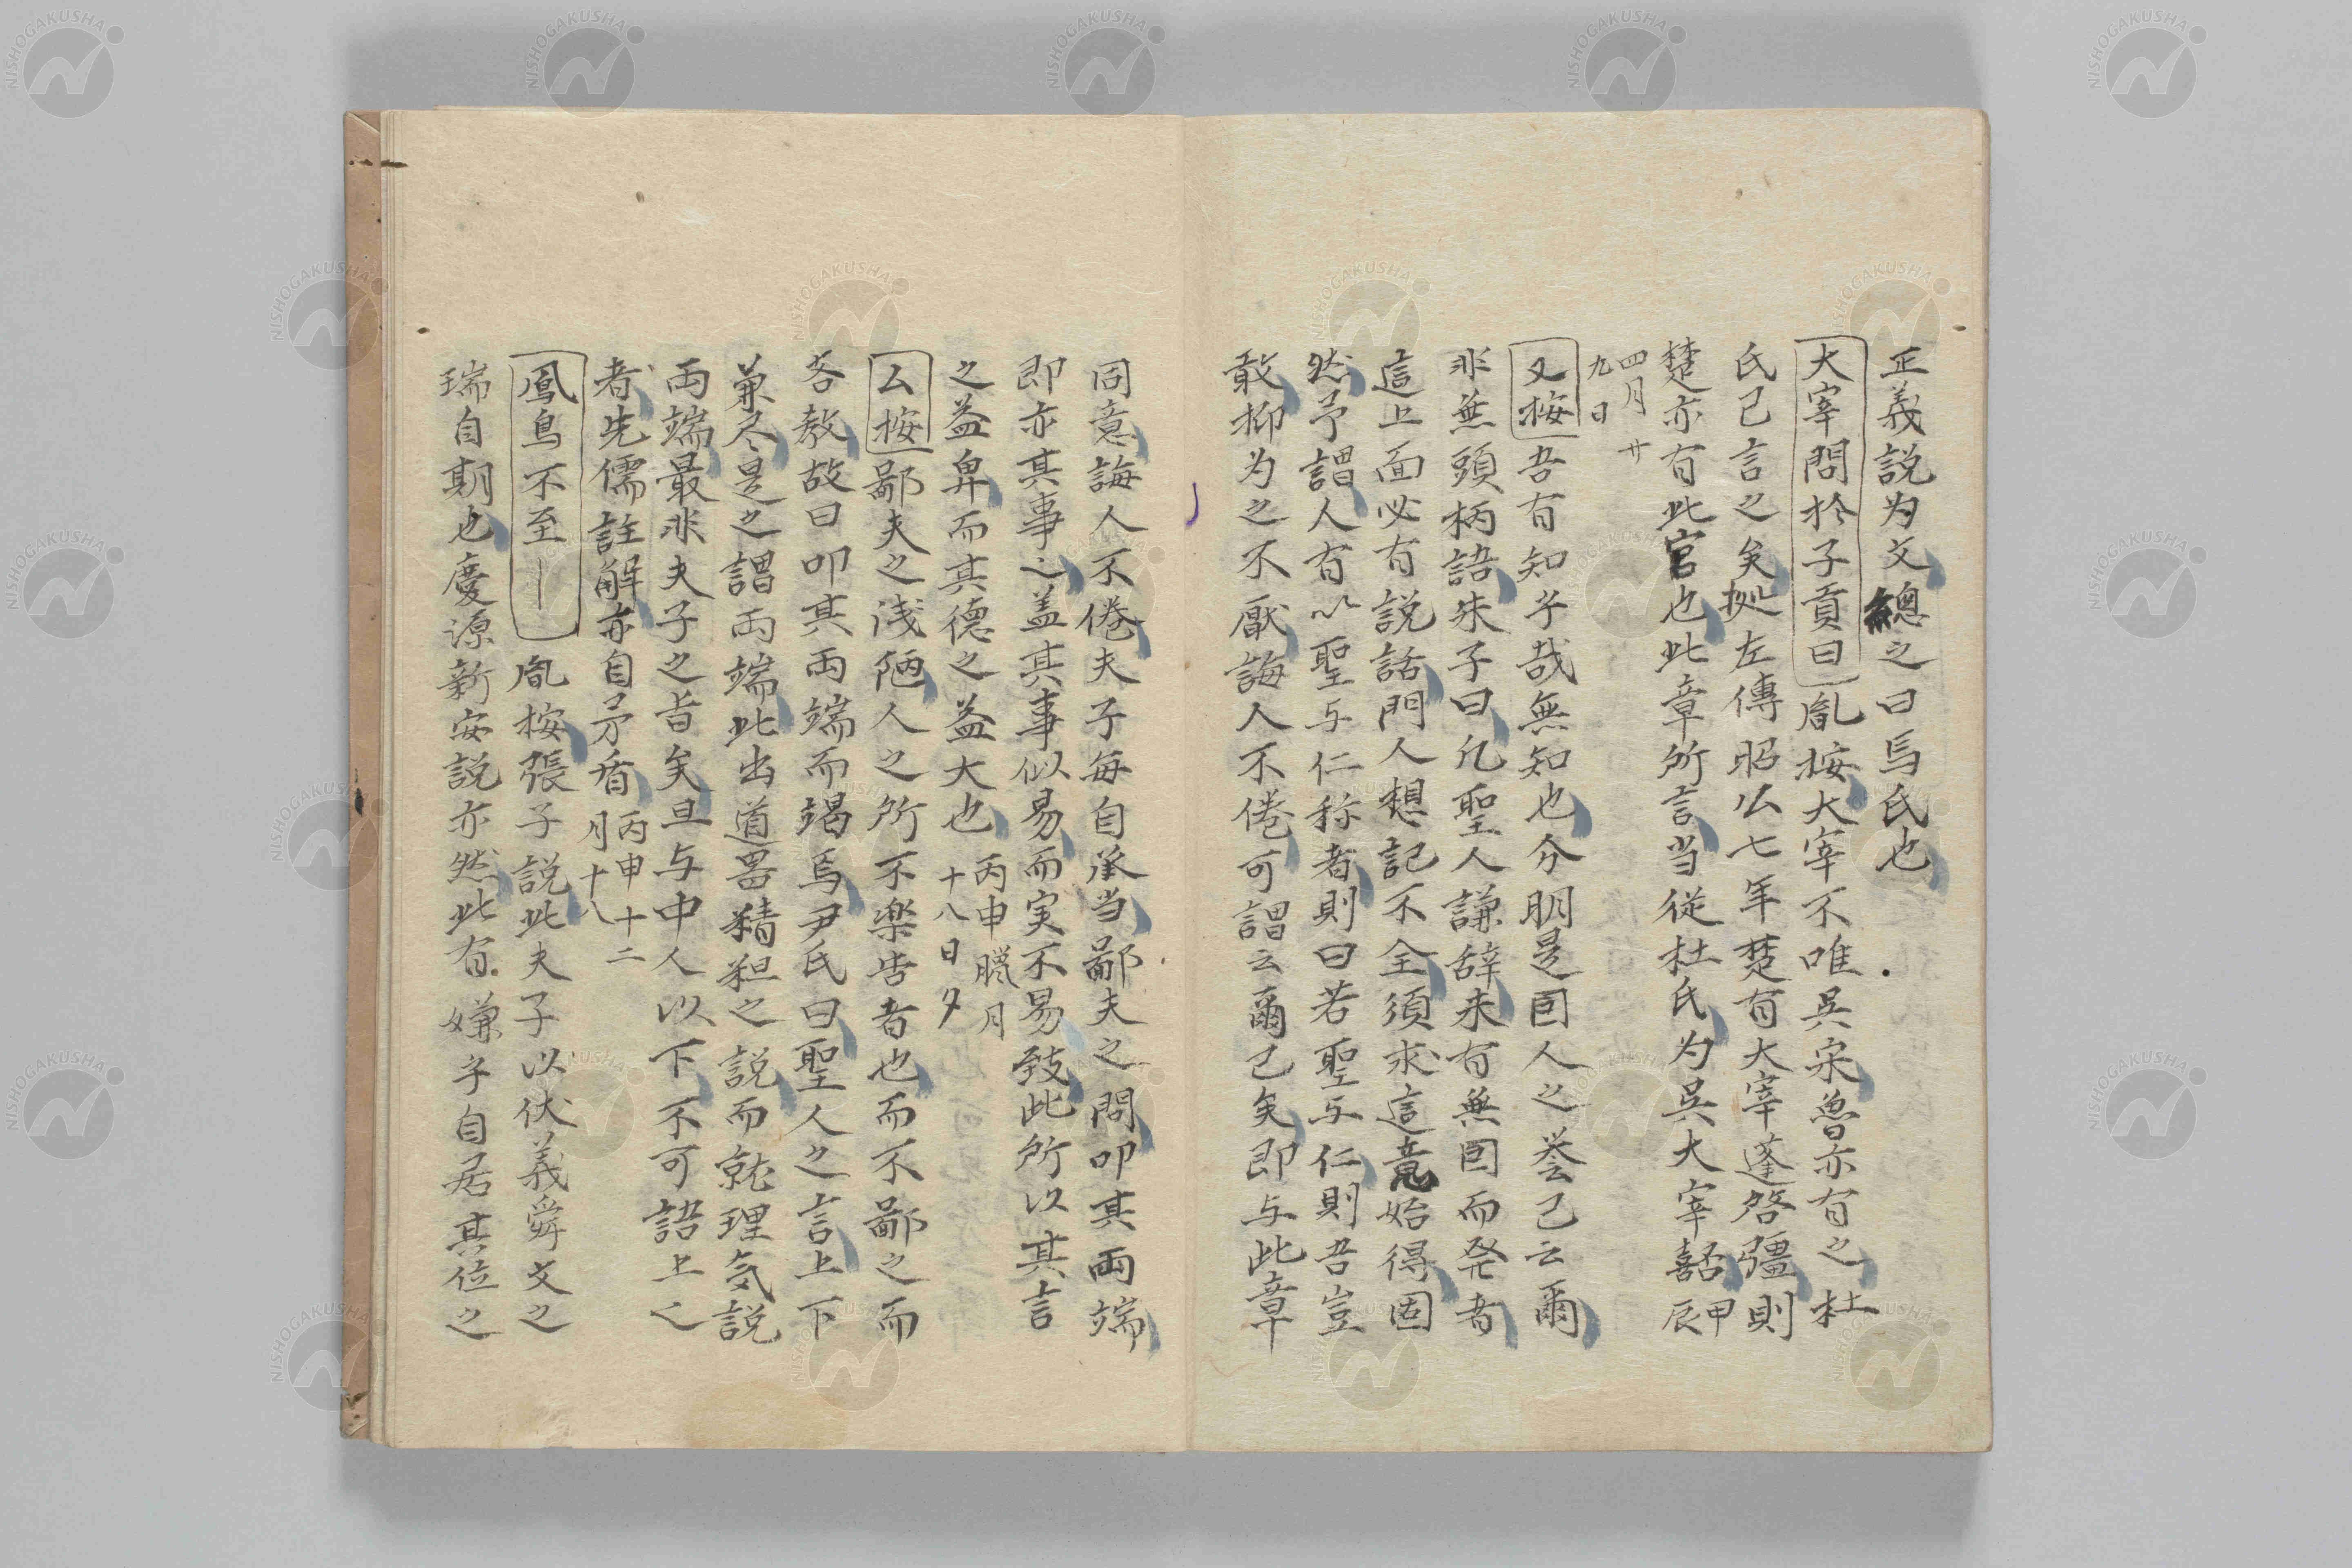 正義説为文總之曰馬氏也
大宰問於子貢曰胤按大宰不唯呉宋魯亦有之杜
氏已言之矣拠左傳昭公七年楚有大宰薳啓疆則
楚亦有此官也此章所言当從杜氏为呉大宰嚭甲辰
四月廿九日
又按吾有知乎哉無知也分明是因人之誉己云爾
非無頭柄語朱子曰凡聖人謙辞未有無因而発者
這上面必有説話門人想記不全須求這意始得固
然予謂人有以聖与仁称者則曰若聖与仁則吾豈
敢抑为之不厭誨人不倦可謂云爾已矣即与此章
同意誨人不倦夫子毎自承当鄙夫之問叩其両端
即亦其事也盖其事似易而実不易致此所以其言
之益卑而其德之益大也丙申臘月十八日夕
又按鄙夫之浅陋人之所不楽告者也而不鄙之而
吝教故曰叩其両端而竭焉尹氏曰聖人之言上下
兼尽是之謂両端此出道器精粗之説而就理気説
両端最非夫子之旨矣且与中人以下不可語上之
者先儒註解亦自矛盾丙申十二月十八
鳳鳥不至｜胤按張子説此夫子以伏義舜文之
瑞自期也慶源新安説亦然此有嫌乎自居其位之
NISHOGAKUSHA